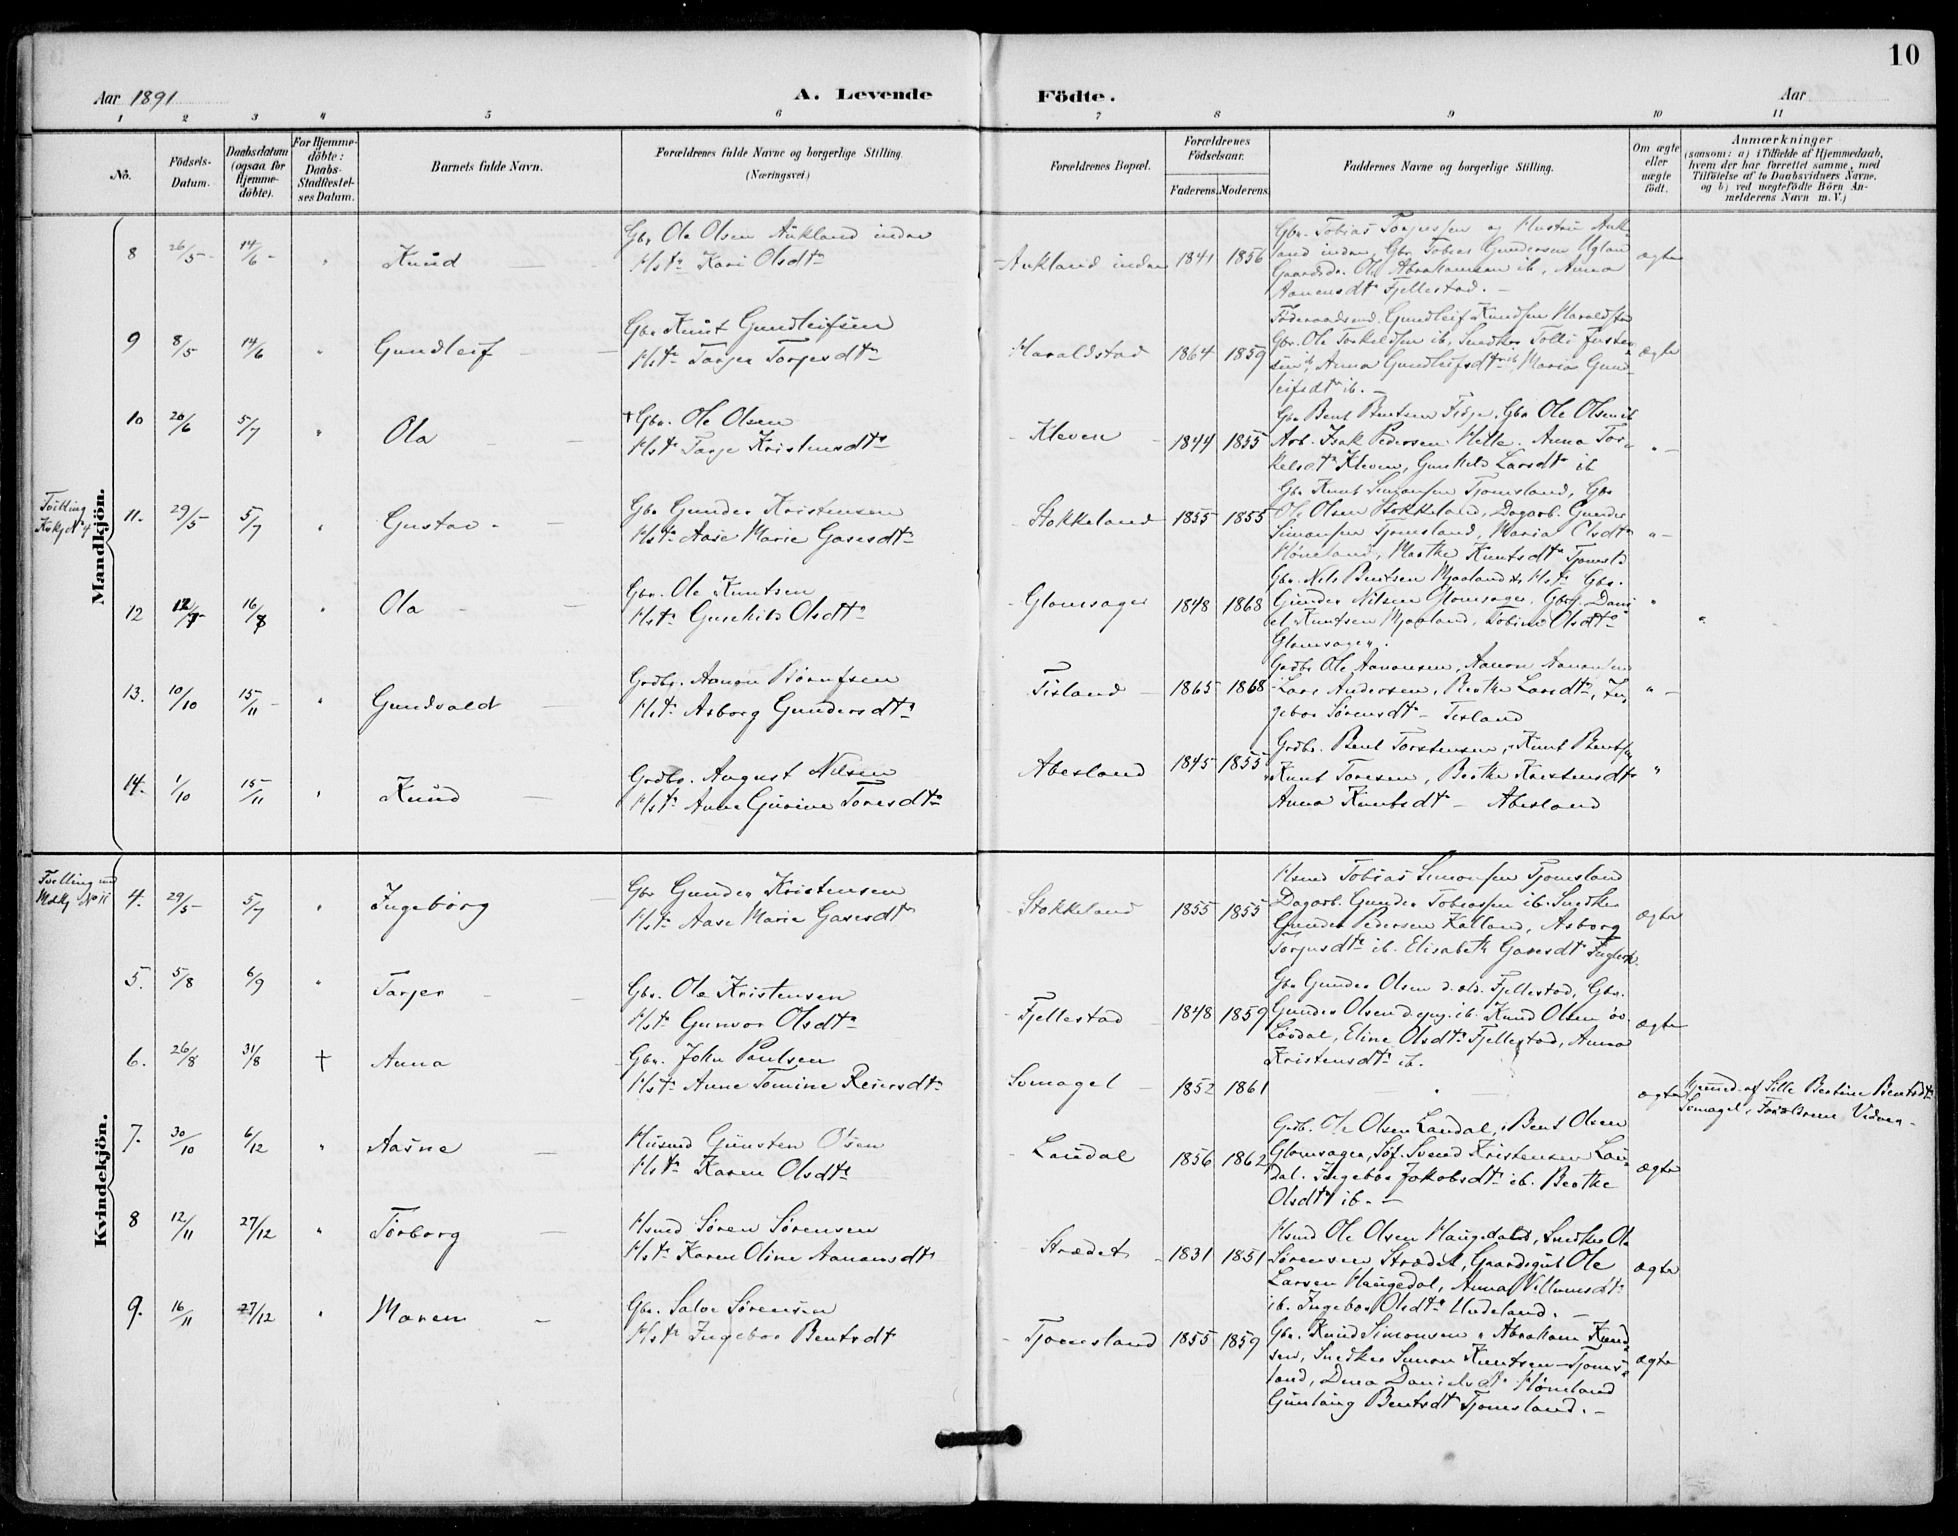 10
Aar 1891
A. Levende
Födte.
Aar
1 2 3 4 5 6 7 8 9 10 11
No.
Födsels-Datum.
Daabsdatum (ogsaa for Hjemme-döbte).
For Hjemme-döbte: Daabs-Stadfæstel-ses Datum.
Barnets fulde Navn.
Forældrenes fulde Navne og borgerlige Stilling
(Næringsvei.)
Forældrenes Bopæl.
Forældrenes Födselsaar.
Faderens. Moderens.
Faddernes Navne og borgerlige Stilling.
Om ægte eller uægte födt.
Anmærkninger
(saasom: a) i Tilfælde af Hjemmedaab, hvem der har forrettet samme, med Tilföielse af to Daabsvidners Navne, og b) ved uægtefödte Börn An-melderens Navn m. V.)
Mandkjön.
8 26/5 14/6 " Knud
Gbr Ole Olsen Aukland indre
Hst. Kari Olsdt.
Aukland indre 1841 1856
Gbr. Tobias Torjessen og Hustru Auk-
land indre, Gbr Tobias Gundersen Ugland
Gaardsdr. Ole Abrahamsen ib, Anna
Aanensdt. Fjellestad. -
ægte
9 8/5 14/6 " Gundleif
Gbr Knut Gundleifsen
Hst. Tarjer Torjesdt.
Haraldstad 1864 1859
Föderaadsmd. Gundleif Knudsen Haraldstad
Gbr. Ole Torkeldsen ib, Snedker Tolli Josten-
sen ib, Anna Gundleifsdt. ib, Maria Gund-
leifsdt. ib. -
ægte
10 20/6 5/7 " Ola
+ Gbr. Ole Olsen
Hst. Tarje Kristensdt.
Kleven 1844 1855
Gbr Bent Bentsen Fidje, Gbr Ole Olsen ib
Arb. Isak Pedersen Helle. Anna Tor-
kelsdt. Kleven, Gunhild Larsdt. ib
" -
Tvilling
Kvkj. No 4
11. 29/5 5/7 " Gustav
Gbr Gunder Kristensen
Hst. Aase Marie Gasesdt.
Stokkeland 1855 1855
Gbr Knut Simonsen Tjomsland, Gbr
Ole Olsen Stokkeland, Dagarb. Gunder
Simonsen Tjomsland, Maria Olsdt.
Höneland, Marthe Knutsdt. Tjomsld
" -
12 12/7 16/8 " Ola
Gbr. Ole Knutsen
Hst. Gunhild Olsdt.
Glomsager 1848 1868
Gbr. Nils Bentsen Mjaaland & Hst. Gbr.
Gunder Nilsen Glomsager. Gbr. Dani-
el Knutsen Mjaaland, Tobine Olsdt.
Glomsager.
"
13. 10/10 15/11 " Gundvald
Grdbr. Aanon Börufsen
Hst. Asborg Gundersdt.
Tisland 1865 1868
Grdbr Ole Aanonsen, Aanon Aanonsen
Lars Andersen, Berthe Larsdt., In-
gebor Sörensdt. - Tisland
" -
14. 1/10 15/11 " Knud
Grdbr. August Nilsen
Hst. Anne Gurine Toresdt.
Abesland 1845 1855
Grdbr. Bent Torstensen, Knut Bentsen
Knut Toresen, Berthe Kristensdt.
Anna Knutsdt. - Abesland
"
Kvindekjön.
Tvilling md
Mdkj No 11
4. 29/5 5/7 " Ingebörg
Gbr Gunder Kristensen
Hst. Aase Marie Gasesdt.
Stokkeland 1855 1855
Hsmd Tobias Simonsen Tjomsland
Dagarb. Gunder Tobiassen ib. Snedker
Gunder Pedersen Kalland, Asborg
Torjusdt. ib. Elisabeth Gasesdt
ægte
5. 5/8 6/9 " Tarjer
Gbr. Ole Kristensen
Hst. Gunvor Olsdt.
Fjellestad 1848 1859
Gbr Gunder Olsen d. æld. Fjellestad, Gbr.
Gunder Olsen d. yng. ib. Knud Olsen öv.
Lovdal, Eline Olsdt. Fjellestad, Anna
Kristensdt. ib.
ægte
6. 26/8 31/8 † Anna
Gbr. John Paulsen
Hst. Anne Tomine Reiersdt.
Svmagel 1852 1861
"
ægte
Hjemmed. af Sille Bertine Bentsdt.
Svmagel, Forældrene Vidner.
7. 30/10 6/12 " Aasne
Husmd Gunsten Olsen
Hst. Karen Olsdt.
Laudal 1856 1862
Grdb. Ole Olsen Laudal, Bent Olsen
Glomsager, Söf. Svend Kristensen Lau-
dal. Ingebor Jakobsdt. ib. Berthe
Olsdt. ib. -
ægte
8 12/11 27/12 " Torborg
Husmd Sören Sörensen
Hst. Karen Oline Aanonsdt.
Strædet 1831 1851
Hsmd Ole Olsen Haugedal, Snedker Ole
Sörensen Strædet, Gaardsgut Ole
Larsen Haugedal, Anna Villumsdt.
ib. Ingebor Olsdt. Udeland. -
ægte
9. 16/11 27/12 " Maren
Gbr. Salve Sörensen
Hst. Ingebor Bentsdt
Tjomsland 1855 1859
Gbr. Knud Simonsen, Abraham Knud-
sen, Snedker Simon Knutsen Tjoms-
land, Dina Danielsdt. Höneland
Gunlaug Bentsdt Tjomsland. -
ægte